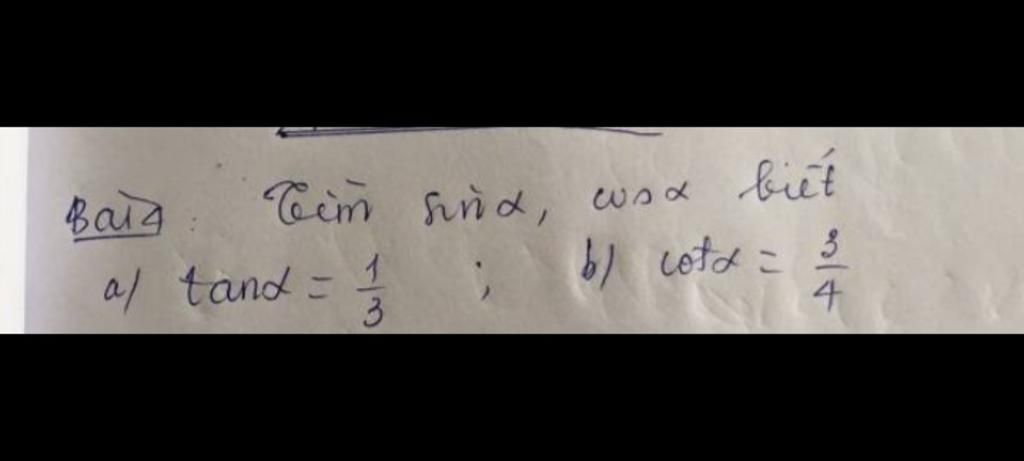 Bài 4: Tìm sinα, cosα biết
a/ tanα = 1/3 ; b/ cotα = 3/4